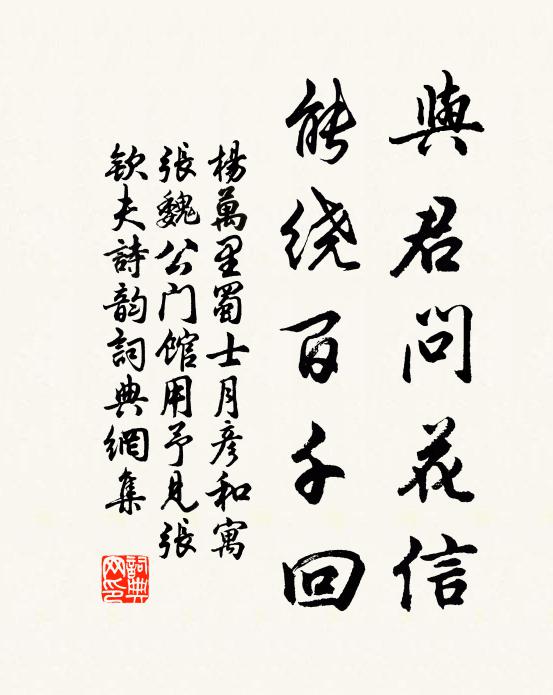 與君問花信
能绕百千回
楊萬里蜀士月彦和寓
張魏公门館用予見張
欽夫詩韵詞典網集
詞典网印